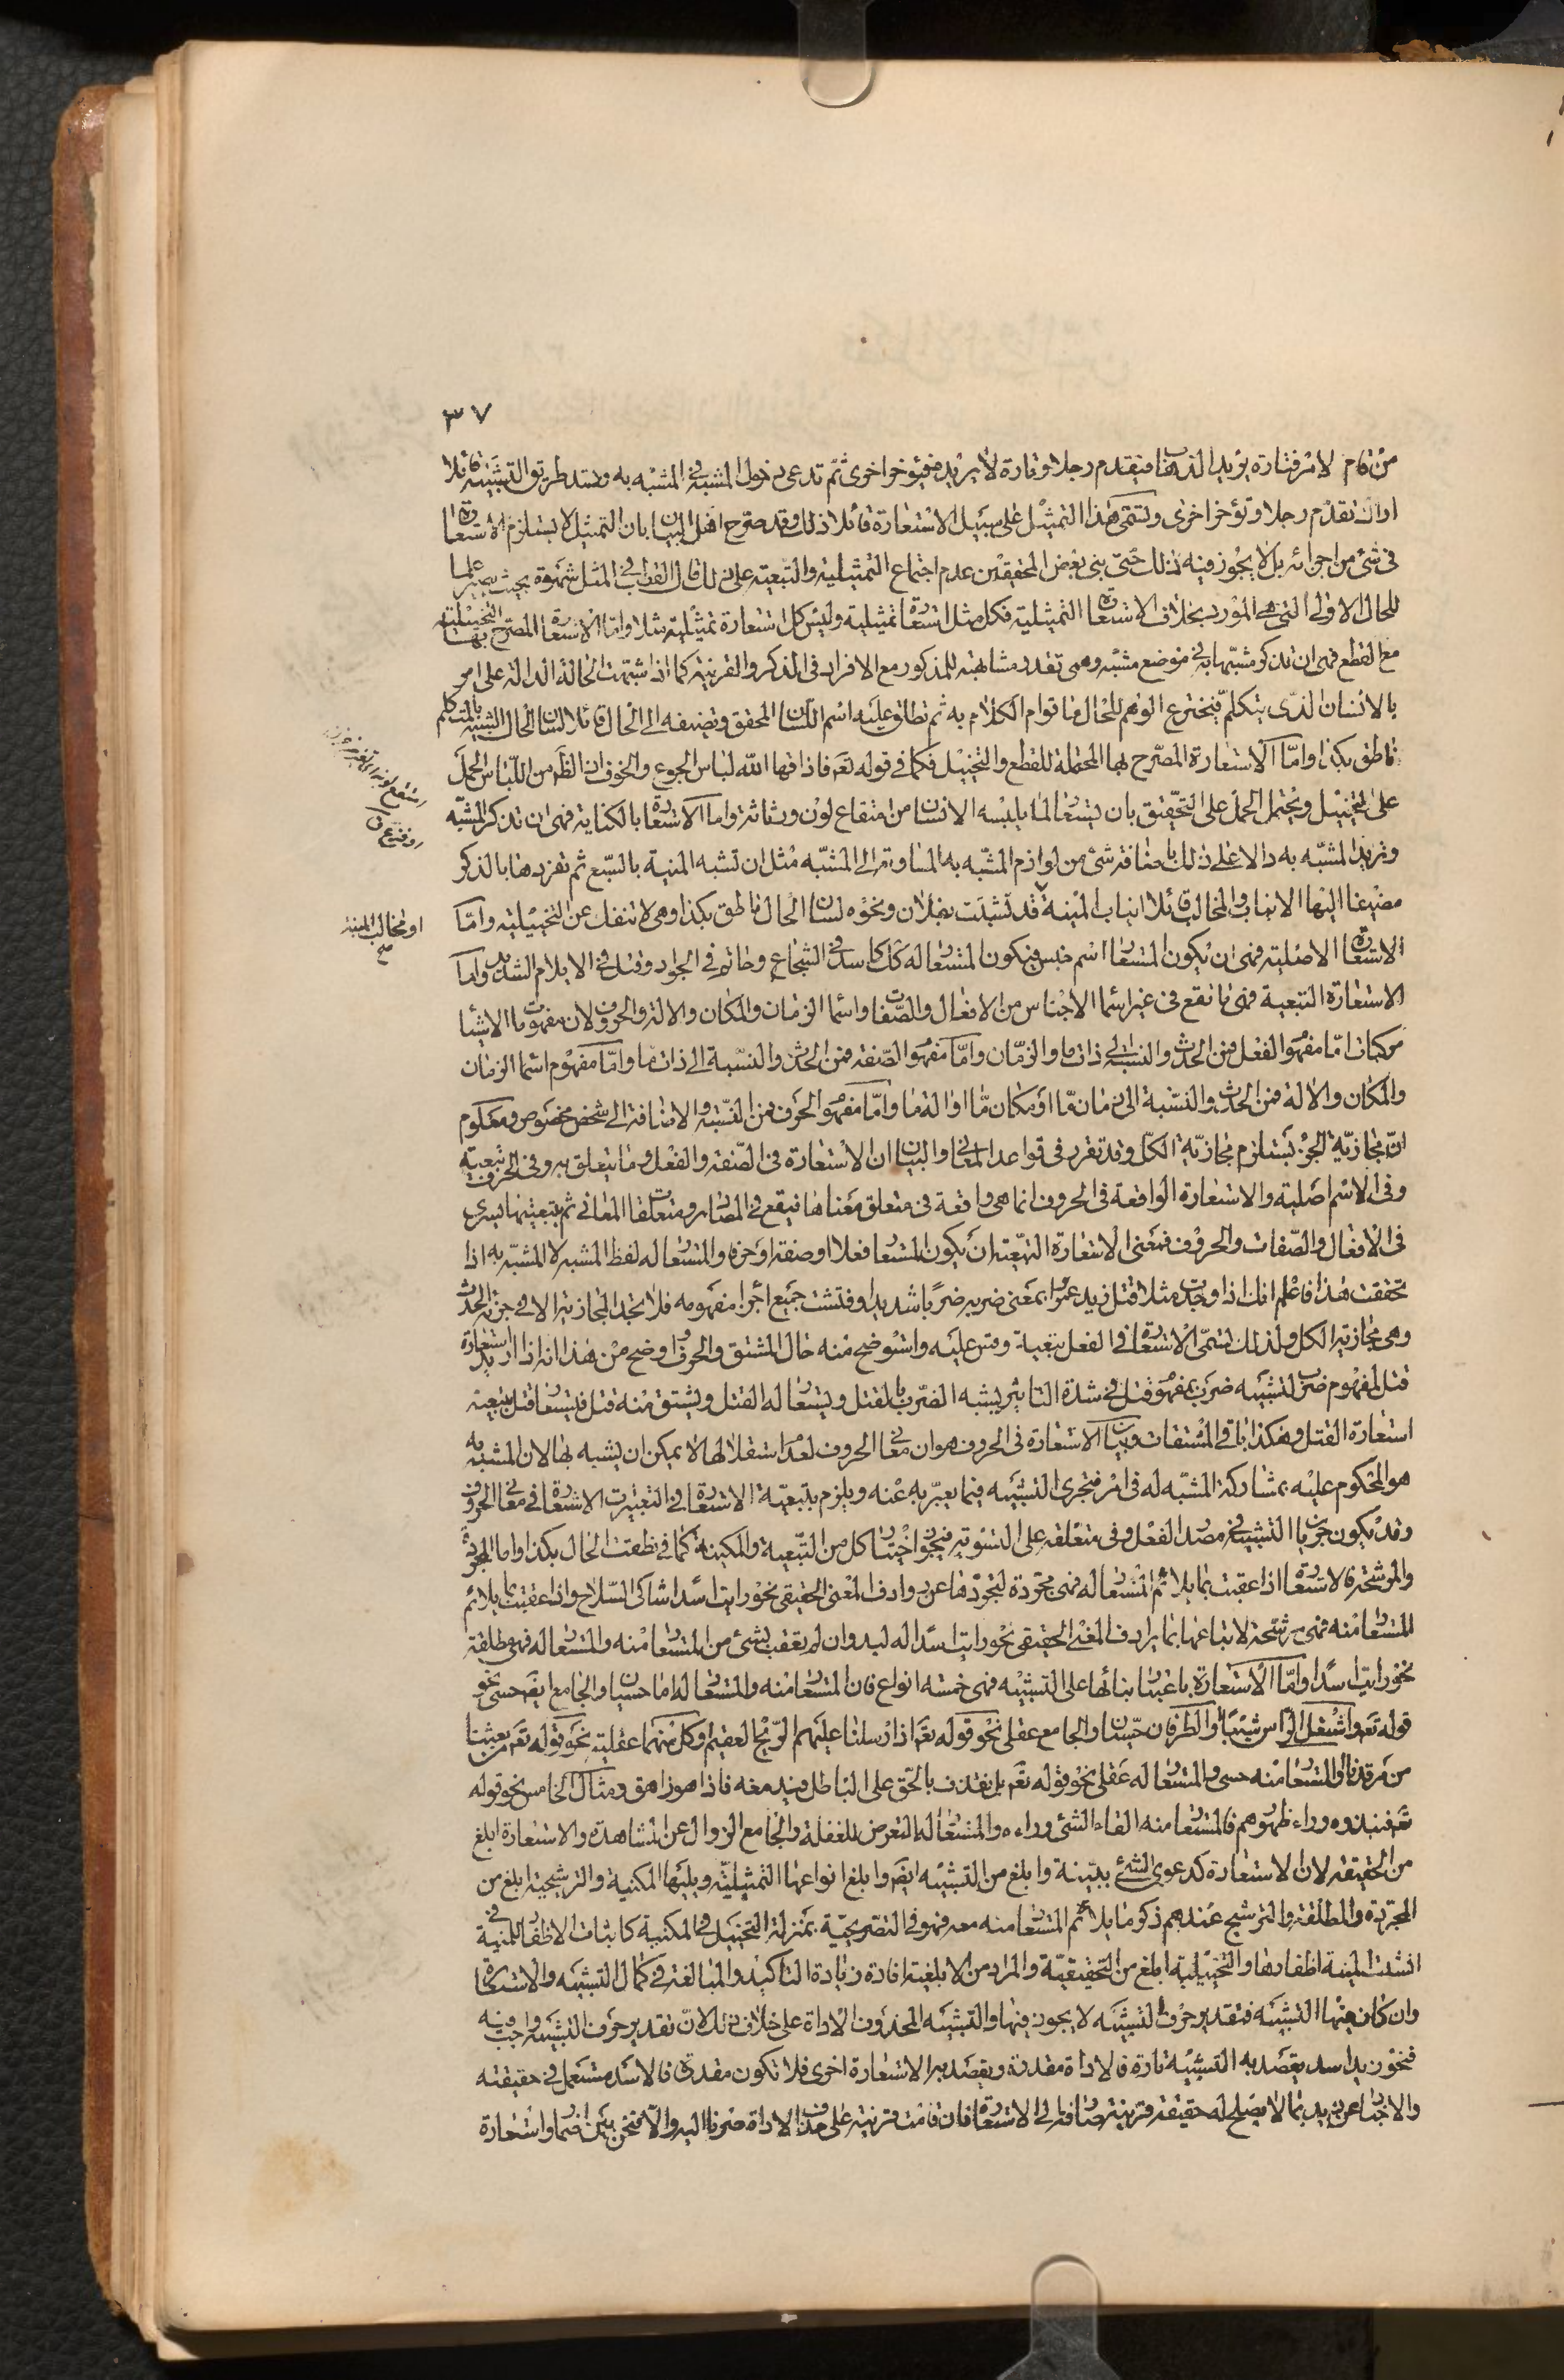 ٣٧
من قام لامر فتارة يريد الذهاب فيقدم رجلا وتارة لا يريد فيؤخر اخرى ثم تدعى دخول المشبه في المشبه به وتسد طريق التشبيه قائلا
اراك تقدم رجلا وتؤخر اخرى وتسمى هذا التمثيل على سبيل الاستعارة قائلا ذلك وقد صرح اهل البيان بان التمثيل لا يستلزم الاستعارة
فى شئ من اجزائه بل لا يجوز فيه ذلك حتى بنى بعض المحققين عدم اجتماع التمثيلية والتبعية على ذلك قال القرافى في المثل شهرة بحيث يصير علما
للحال الاولى التى هى المورد بخلاف الاستعارة التمثيلية فكل مثل استعارة تمثيلية وليس كل استعارة تمثيلية مثلا واما الاستعارة المصرح بها التخييلية
مع القطع فهى ان تذكر مشبها به في موضع مشبه وهمى تقدر مشابهته للمذكور مع الافراد فى الذكر والقرينة كما اذا شبهت الحالة الدالة على امر
بالانسان الذى يتكلم فيخترع الوهم للحال ما قوام الكلام به ثم تطلق عليه اسم اللسان المحقق وتضيفه الى الحال قائلا لسان الحال الشبيه بالمتكلم
ناطق بكذا واما الاستعارة المصرح بها المحتملة للقطع والتخييل فكما فى قوله تعه فاذاقها الله لباس الجوع والخوف اذ الظه من اللباس الحمل
على التخييل ويحتمل الحمل على التحقيق بان يستعار لما يلبسه الانسان من امتقاع لون ورثاثة واما الاستعارة بالكناية فهى ان تذكر المشبه
وتريد المشبه به دالا على ذلك باضافة شئ من لوازم المشبه به المساوية الى المشبه مثل ان تشبه المنية بالسبع ثم تفردها بالذكر
مضيفا اليها الانياب والمخالب قائلا انياب المنية قد نشبت بفلان ونحوه لسان الحال ناطق بكذا وهى لا تنفك عن التخييلية واما
او مخالب المنية صح
الاستعارة الاصلية فهى ان يكون المستعار اسم جنس فيكون المستعار له كذلك كاسد فى الشجاع وحاتم فى الجواد وقتل فى الايلام الشديد واما
الاستعارة التبعية فهى ما تقع فى غير اسماء الاجناس من الافعال والصفات واسماء الزمان والمكان والآلة والحروف لان مفهومات الاشياء
مركبات اما مفهوم الفعل فمن الحدث والنسبة الى ذات ما والزمان واما مفهوم الصفة فمن الحدث والنسبة الى ذات ما واما مفهوم اسماء الزمان
والمكان والآلة فمن الحدث والنسبة الى زمان ما او مكان ما او آلة ما واما مفهوم الحرف فمن النسبة والاضافة الى شخص مخصوص ومعلوم
ان مجازية الجزء تستلزم مجازية الكل وقد تقرر فى قواعد المعانى والبيان ان الاستعارة فى الصفة والفعل وما يتعلق به وفى الحرف تبعية
وفى الاسم اصلية والاستعارة الواقعة فى الحروف انما هى واقعة فى متعلق معناها فيقع فى المصادر ومتعلقات المعانى ثم بتبعيتها تسرى
فى الافعال والصفات والحروف فمعنى الاستعارة التبعية ان يكون المستعار فعلا او صفة او حرفا والمستعار له لفظ المشبه لا المشبه به اذا
تحققت هذا فاعلم انك اذا وجدت مثلا قتل زيد عمرا بمعنى ضربه ضربا شديدا وفتشت جميع اجزاء مفهومه فلا تجد المجازية الا فى جزء الحدث
وهى مجازية الكل ولذلك تسمى الاستعارة فى الفعل تبعية وقس عليه واستوضح منه حال المشتق والحرف اوضح من هذا انه اذا اريد استعارة
قتل لمفهوم ضرب لتشبيه ضرب بمفهوم قتل فى شدة التاثير يشبه الضرب بالقتل ويستعار له القتل ويشتق منه قتل فيستعار قتل بتبعية
استعارة القتل وهكذا باقى المشتقات وبيان الاستعارة فى الحروف هو ان معانى الحروف لعدم استقلالها لا يمكن ان يشبه بها لان المشبه به
هو المحكوم عليه بمشاركة المشبه له فى امر فتجرى التشبيه فيما يعبر به عنه ويلزم بتبعية الاستعارة فى التعبيرات الاستعارة فى معانى الحروف
وقد يكون جريان التشبيه فى مصدر الفعل وفى متعلقه على التسوية فيجوز اختيار كل من التبعية والمكنية كما فى نطقت الحال بكذا واما المجردة
والمرشحة فالاستعارة اذا عقبت بما يلائم المستعار له فهى مجردة لتجردها عن روادف المعنى الحقيقى نحو رايت اسدا شاكى السلاح واذا عقبت بما يلائم
المستعار منه فهى مرشحة لاتباعها بما يرادف المعنى الحقيقى نحو رايت اسدا له لبد وان لم تعقب بشئ من المستعار منه والمستعار له فهى مطلقة
نحو رايت اسدا واما الاستعارة باعتبار بنائها على التشبيه فهى خمسة انواع فان المستعار منه والمستعار له اما حسيان والجامع ايضه حسى نحو
قوله تعه واشتعل الراس شيبا والطرفان حسيان والجامع عقلى نحو قوله تعه اذ ارسلنا عليهم الريح العقيم وكل منهما عقلية نحو قوله تعه من بعثنا
من مرقدنا والمستعار منه حسى والمستعار له عقلى نحو قوله تعه بل نقذف بالحق على الباطل فيدمغه فاذا هو زاهق ومثال الخامس نحو قوله
تعه فنبذوه وراء ظهورهم فالمستعار منه القاء الشئ وراءه والمستعار له التعرض للغفلة والجامع الزوال عن المشاهدة والاستعارة ابلغ
من الحقيقة لان الاستعارة كدعوى الشئ ببينة وابلغ من التشبيه ايضه وابلغ انواعها التمثيلية ويليها المكنية والترشيحية ابلغ من
المجردة والمطلقة والترشيح عندهم ذكر ما يلائم المستعار منه معه فهو فى التصريحية بمنزلة التخييل فى المكنية كاثبات الاظفار للمنية فى
انشبت المنية اظفارها والتخييلية ابلغ من التحقيقية والمراد من الابلغية افادة زيادة التاكيد والمبالغة فى كمال التشبيه والاستعارة
وان كان فيها التشبيه فتقدير حرف التشبيه لا يجوز فيها والتشبيه المحذوف الاداة على خلاف ذلك لان تقدير حرف التشبيه واجب فيه
فنحو زيد اسد يقصد به التشبيه تارة فالاداة مقدرة ويقصد به الاستعارة اخرى فلا تكون مقدرة فالاسد مستعمل فى حقيقته
والاخبار عن زيد بما لا يصلح له حقيقة قرينة صارفة الى الاستعارة فان قامت قرينة على حذف الاداة صرنا اليه والا فنحن بين اضمار واستعارة